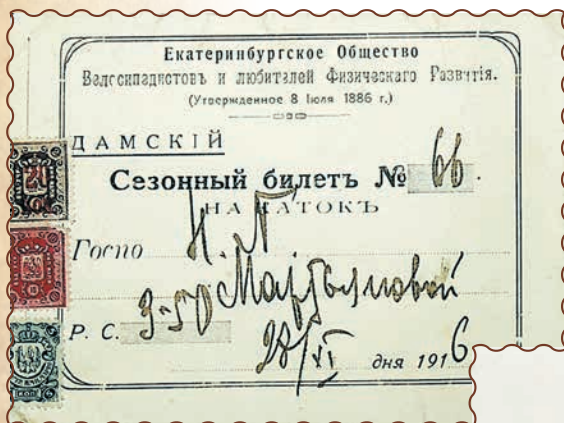 Екатеринбургское Общество
Велосипедистовъ и любителей Физическаго Развитія.
(Утвержденное 8 Іюля 1886 г.)
ДАМСКІЙ
Сезонный билетъ № 66.
НА КАТОКЪ
Госпо Н. Г.
Мартьяновой
Р. С. 3-50
28/XI дня 1916